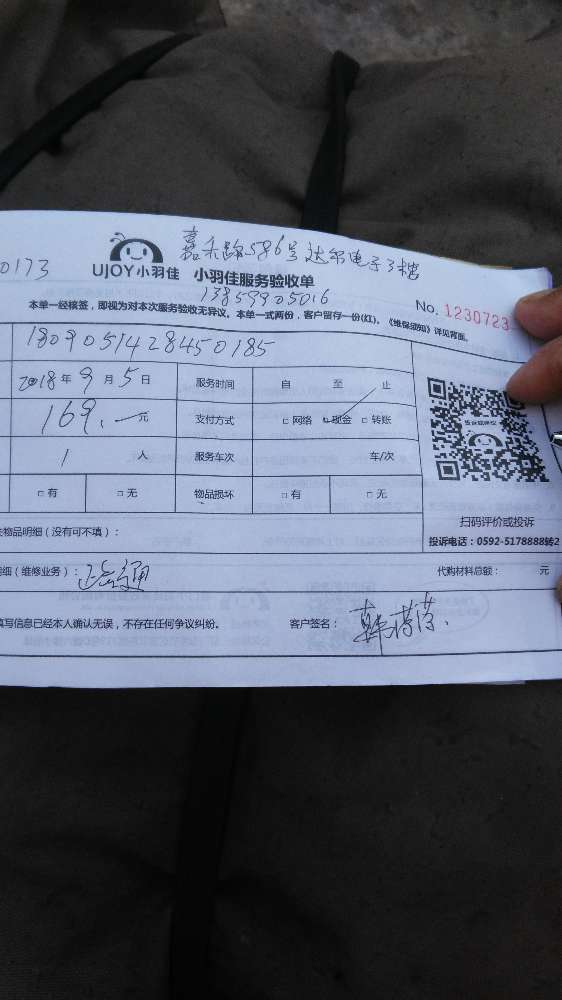 嘉禾路586号达尔电子3楼
0173
UJOY小羽佳 小羽佳服务验收单
13859905016
No. 1230723
本单一经核签，即视为对本次服务验收无异议。本单一式两份，客户留存一份(红)。《维保须知》详见背面。
1809051428450185
2018年9月5日 服务时间 自 至 止
169.一元 支付方式 □网络 □现金 □转账
1人 服务车次 车/次
□有 □无 物品损坏 □有 □无
扫码评价或投诉
投诉电话：0592-5178888转2
物品明细（没有可不填）：
细（维修业务）： 代购材料总额： 元
填写信息已经本人确认无误，不存在任何争议纠纷。 客户签名：